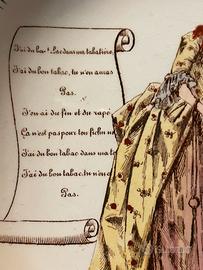 J'ai du bon Tabac dans ma tabatière,
J'ai du bon tabac, tu n'en auras
Pas.
J'en ai du fin et du rapé
Ça n'est pas pour ton fichu nez
J'ai du bon tabac dans ma t
J'ai du bon tabac, tu n'en a
Pas.